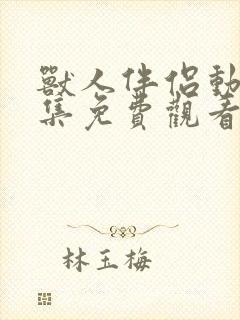 獸人伴侶動
集免費觀看
林玉梅